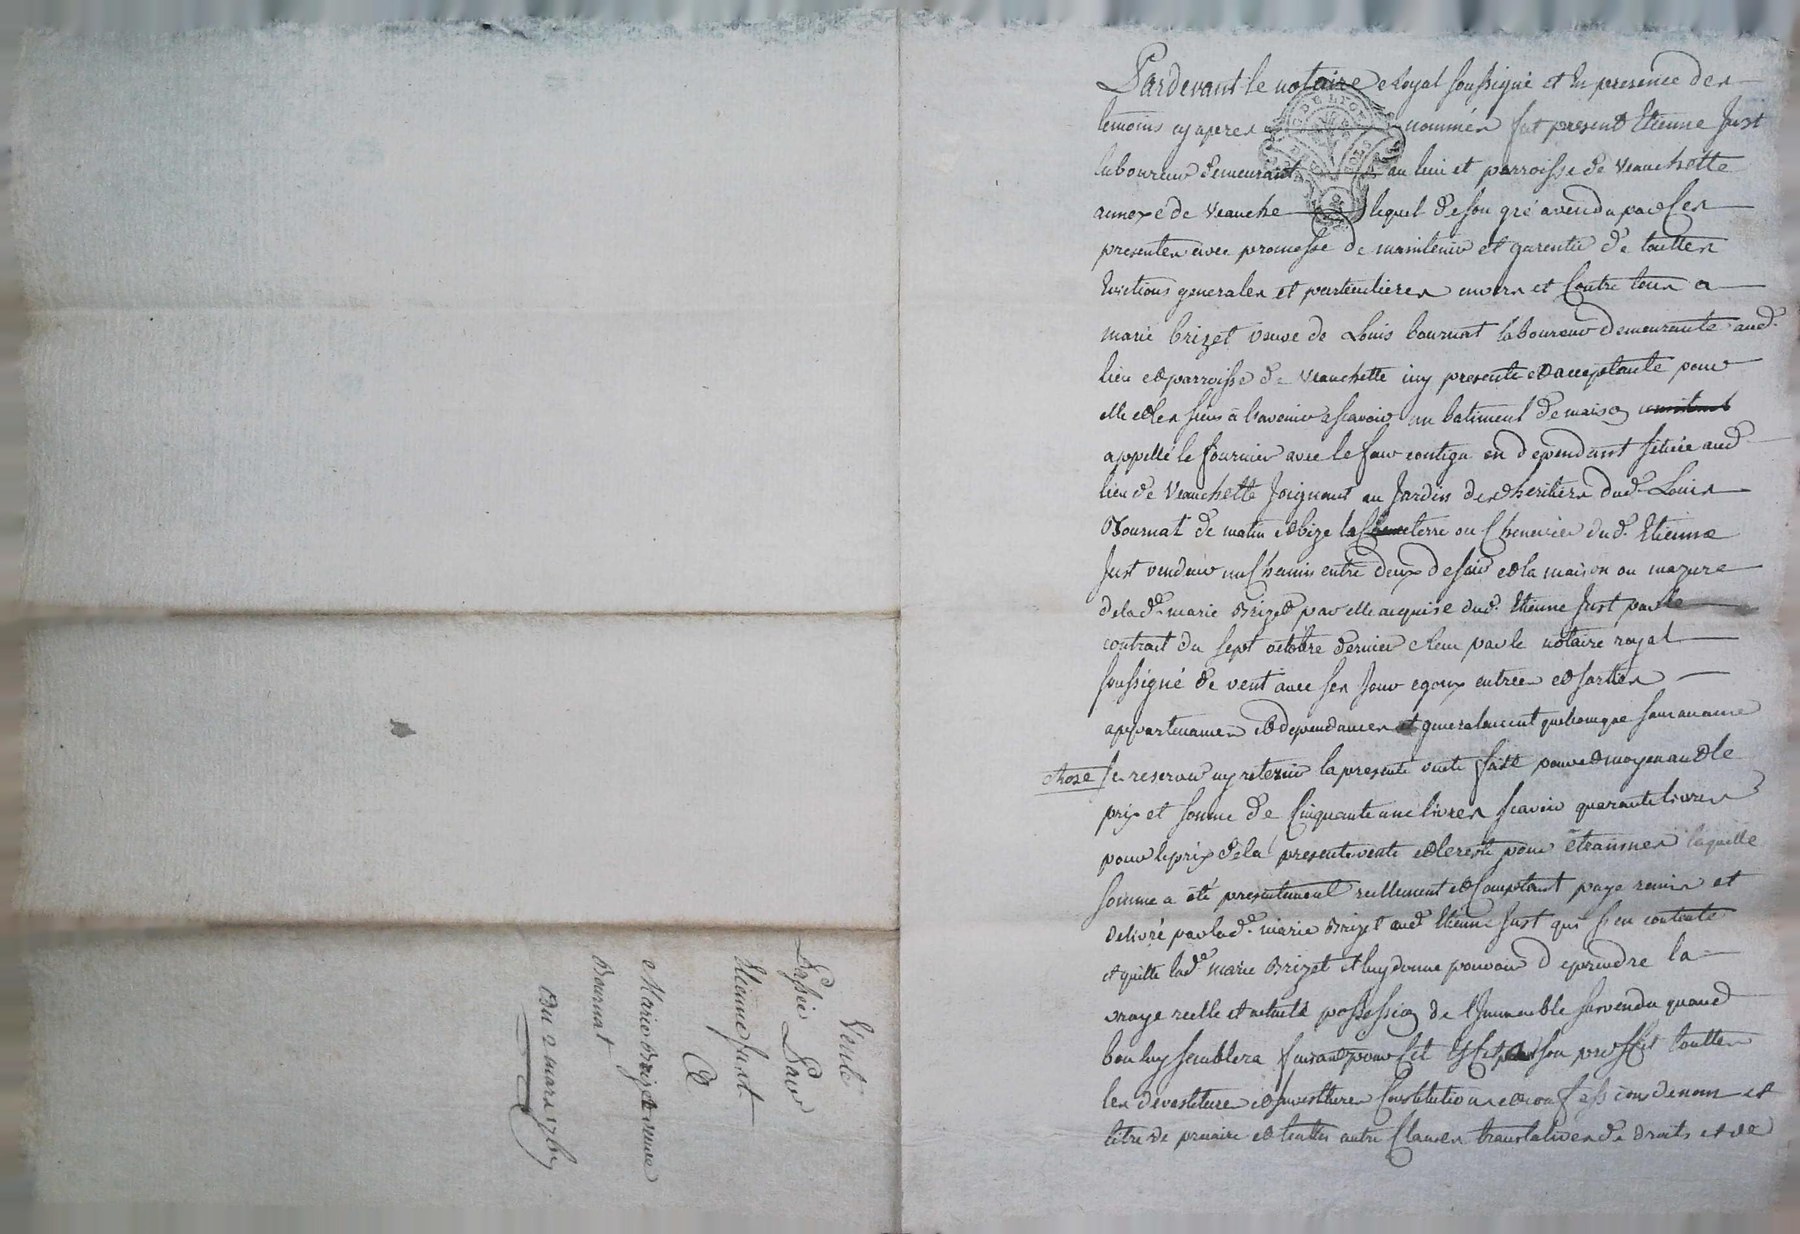 Pardevant le notaire Royal soussigné et En presence des
temoins cy apres nommés fut present Etienne Just
laboureur demeurant au lieu et parroisse de Veauchette
annexe de Veauche lequel de son gré a vendu par ces
presentes avec promesse de maintenir et garentir de touttes
Evictions generales et particulieres envers et Contre tous a
marie brizet veuve de Louis bournat laboureur demeurante aud.
lieu et parroisse de Veauchette icy presente et acceptante pour
elle et les siens à l'avenir scavoir un batiment de maison
appellé le fournier avec le four contigu en dependant scitué aud
lieu de Veauchette Joignant au Jardin des heritiers dud. Louis
Bournat de matin et bize la terre ou Chenevier dud. Etienne
Just vendeur un Chemin entre deux de soir et la maison ou mazure
de lad.e marie Brizet par elle acquise dud. Etienne Just par le
contrat du sept octobre dernier Receu par le notaire royal
soussigné de vent avec ses Jour egoux entrees et sorties
appartenances et dependances et generalement quelconque sans aucune
chose se reserver ny retenir la presente vente faite pour et moyenant le
prix et somme de Cinquante une livres scavoir quarante livres
pour le prix de la presente vente et le reste pour étraines laquelle
somme a été presentement reellement et Comptant paye remis et
delivré par lad.e marie Brizet aud Etienne Just qui s'en contente
et quitte lad.e marie Brizet et luy donne pouvoir de prendre la
vraye reelle et actuelle possession de l'Immeuble survendu quand
bon luy semblera faisant pour cet son proffit touttes
les devestiture et investitures Constitution et de nom et
titre de precaire et touttes autre Clauses translatives de droits et de
Vente
passée par
Etienne Just
A
Marie Brizet veuve
Bournat
Du 2 mars